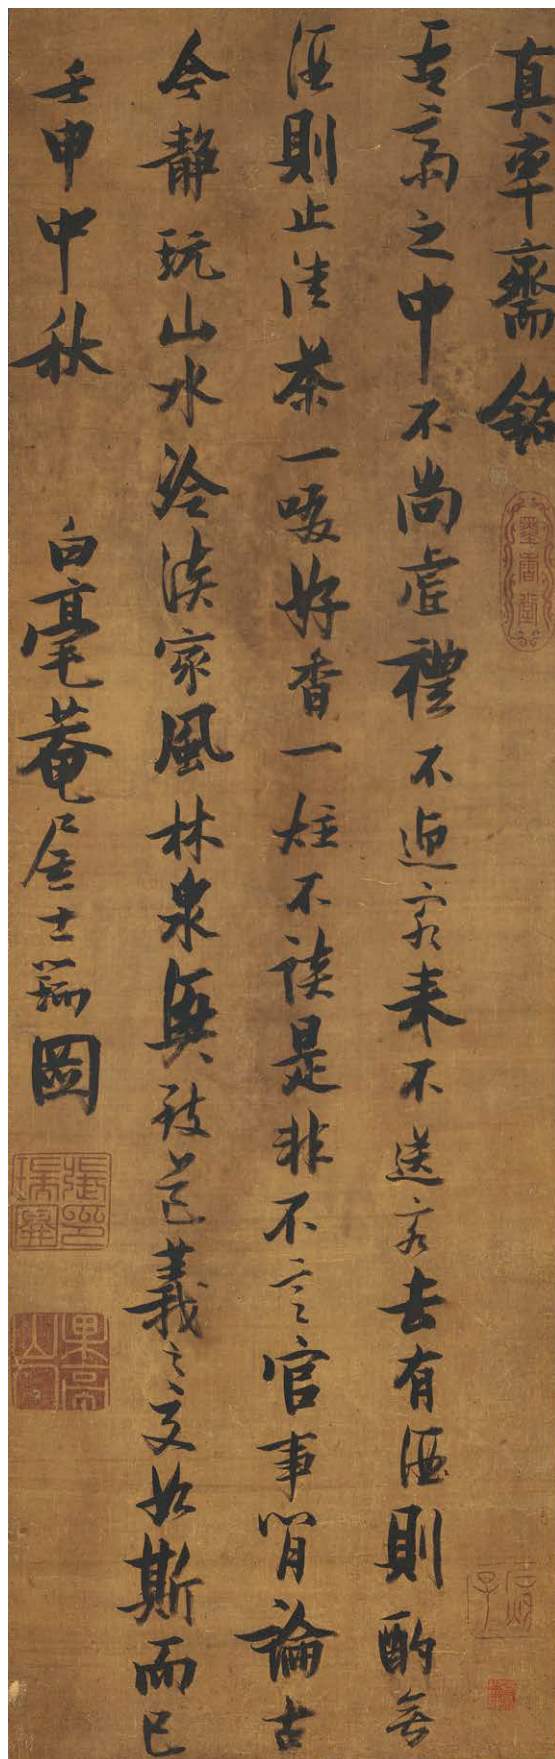 真率齋銘
墨香堂
吾齋之中不尚虛禮不迎客來不送客去有酒則酌無
酒則止清茶一啜好香一炷不談是非不言官事閒論古
今靜玩山水冷淡家風林泉興致道義之交如斯而已
壬申中秋 白毫菴居士瑞圖
張印瑞圖
果亭山人